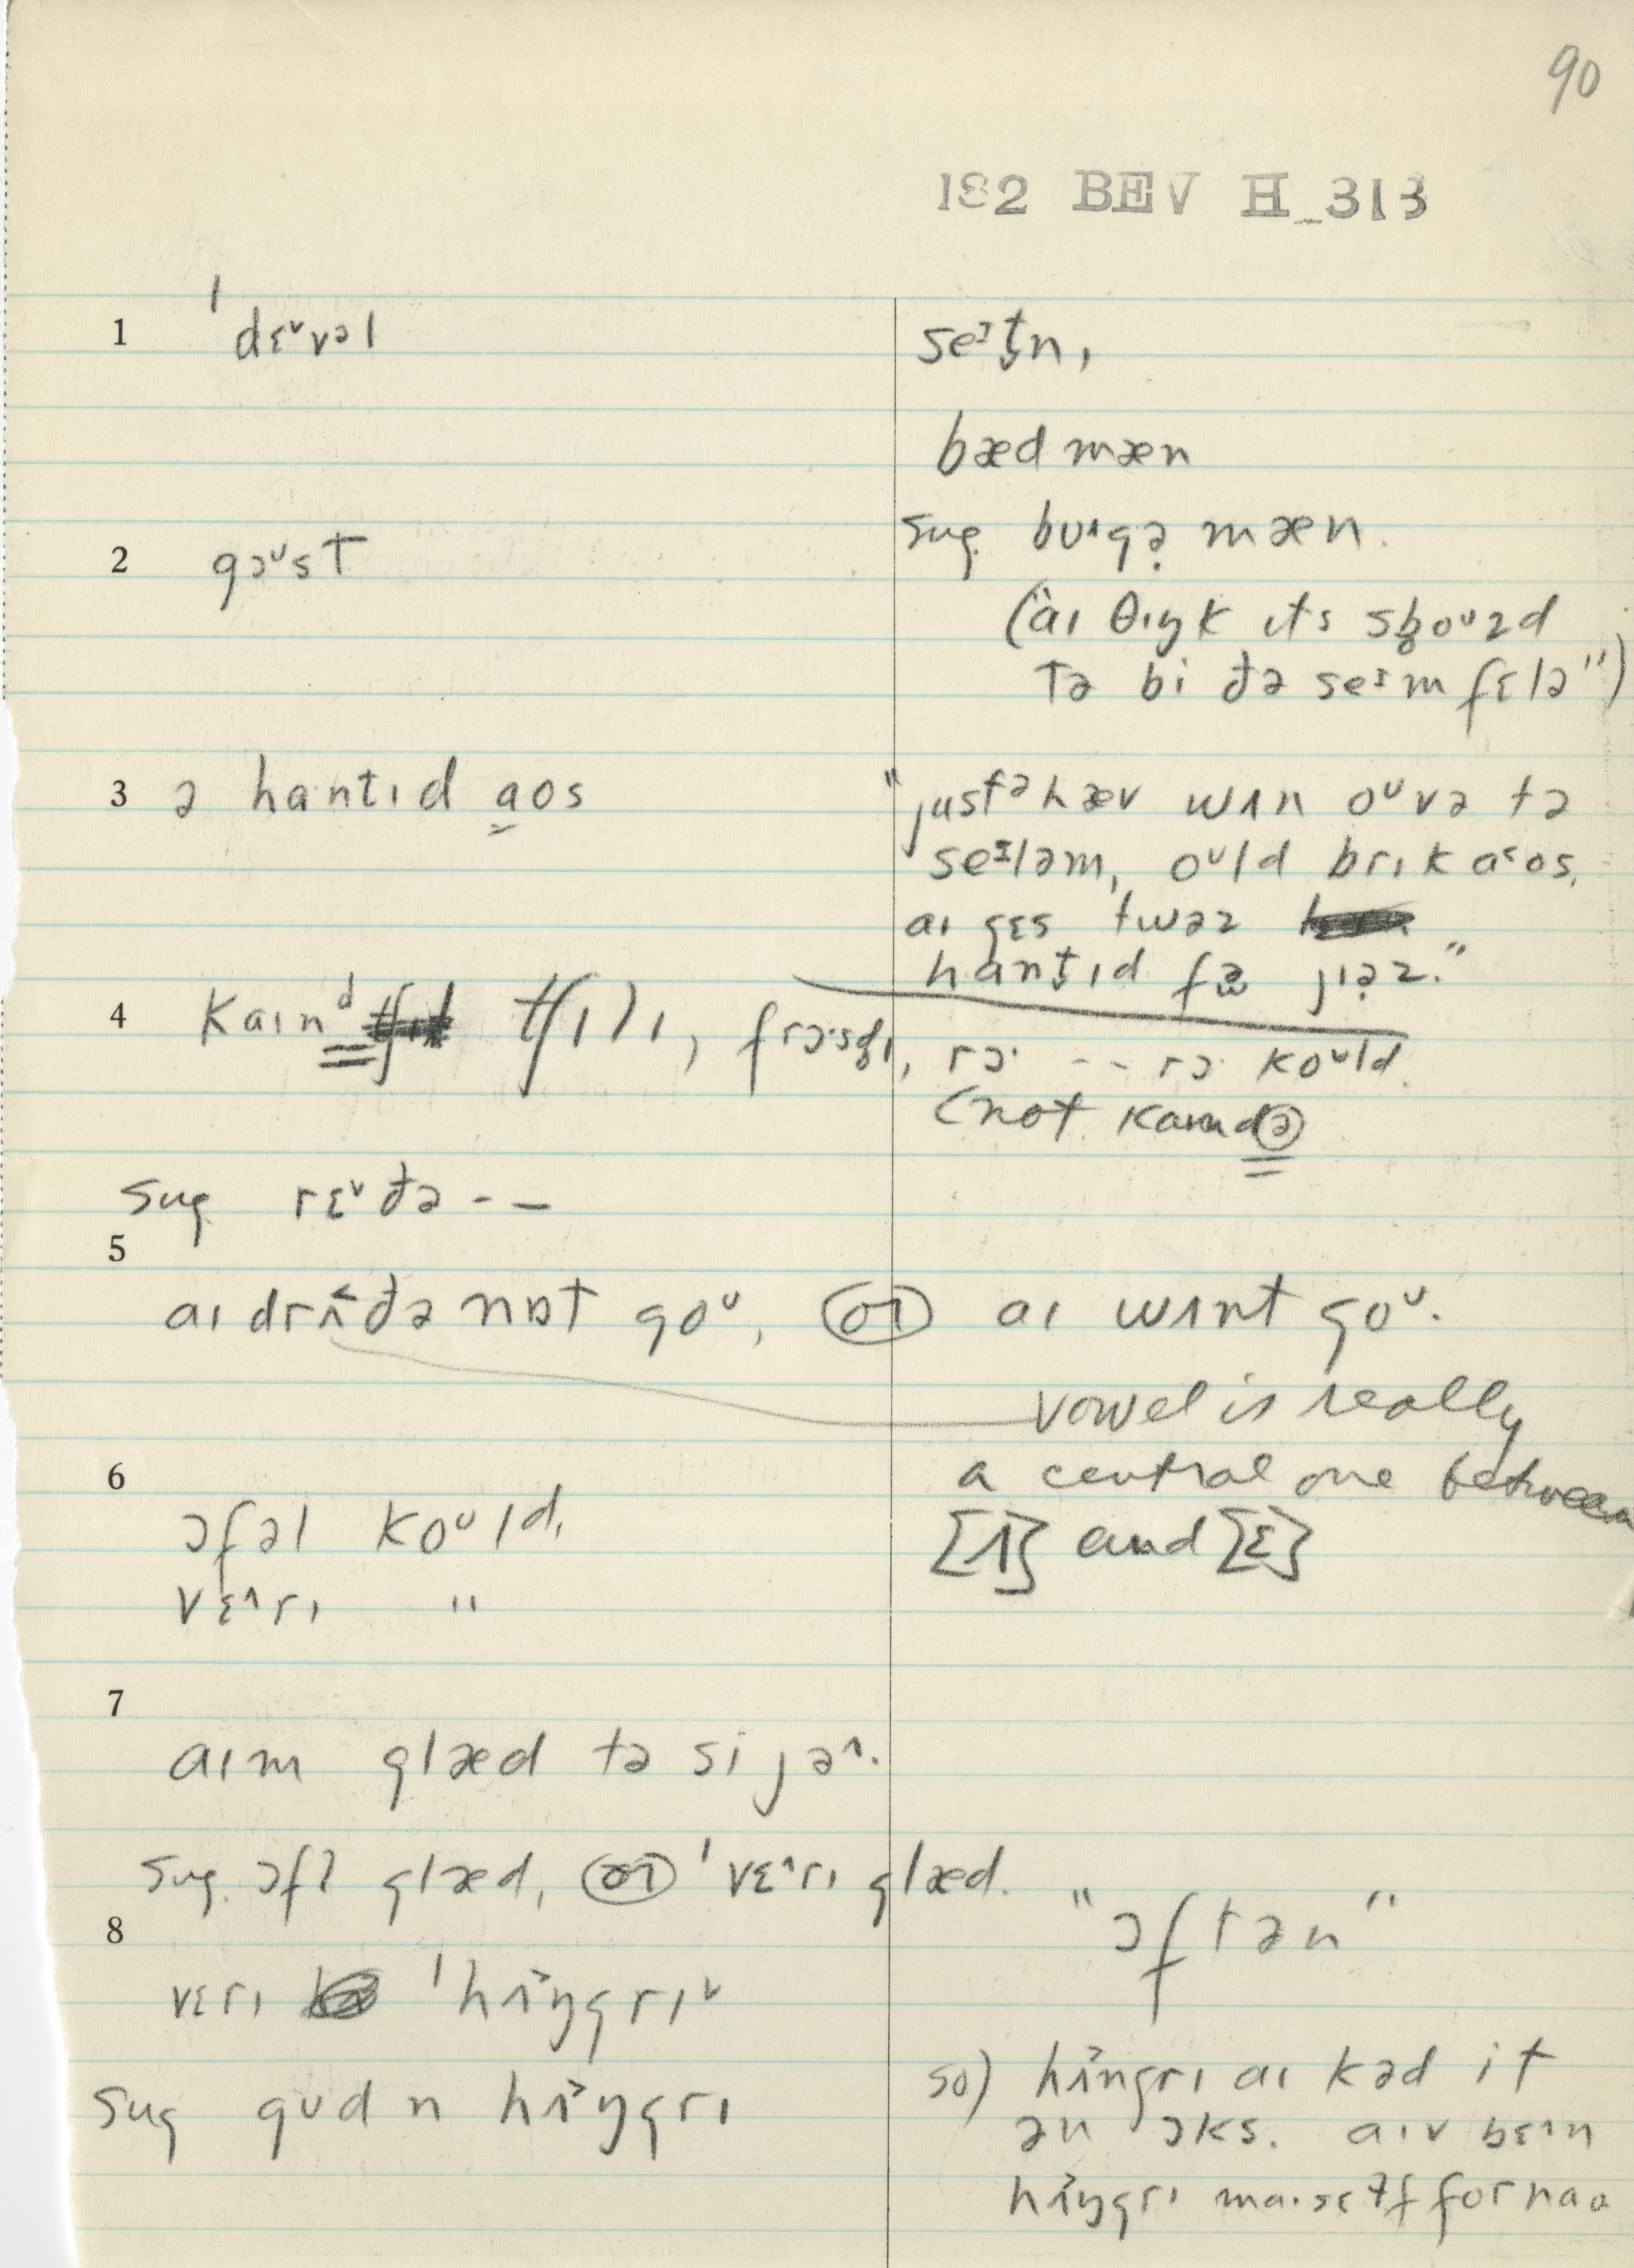 90
182 BEV H_313
1 ˈdɛᵛvəl
seᶦt̬n,
bæd mæn
2 gəᵘst
sug. bᴜ˄gə̣ mæn.
("aɪ θɪŋk ɪts sb̥oᵘzd
tə bi đə seᶦm fɛlə")
3 ə hantɪd a̬os
"just ə hæv wʌn oᵘvə tə
seᶦləm, oᵘld brɪk a˂os.
aɪ gɛs twəz
hant̬ɪd fə jɪə̣z."
4 kaɪnᵈ tʃɪlɪ, frɔ·sd̥ɪ, rɔ· -- rɔ· koᵘld.
(not kaɪndə
sug. rɛᵛđə --
5
aɪ drʌ˂đə nɒt goᵘ, or aɪ wʌnt goᵘ.
vowel is really
a central one between
[ʌ] and [ɛ]
6
ɔfəl koᵘld.
vɛ˄rɪ "
7
aɪm glæd tə si jə˄.
sug. ɔfl glæd, or ˈvɛ˄rɪ glæd.
"ɔftən"
8
vɛrɪ ˈhʌ˃ŋgrɪᵛ
sug gᴜd n hʌ˃ŋgrɪ
so) hʌ˃ngrɪ aɪ kəd it
ən ɔks. aɪv bɛ˄n
hʌ˃ŋgrɪ ma·sɛɫf for nao